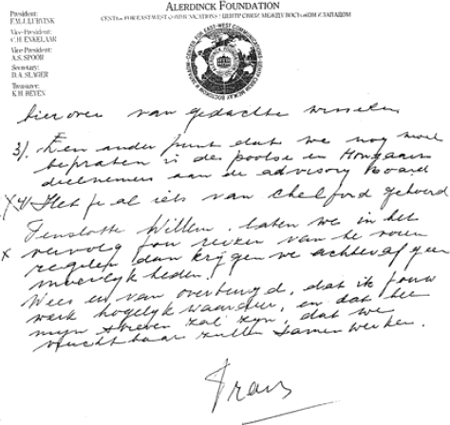 ALERDINCK FOUNDATION
CENTER FOR EAST-WEST COMMUNICATIONS / ЦЕНТР СВЯЗИ МЕЖДУ ВОСТОКОМ И ЗАПАДОМ
President:
F.M.J. LURVINK
Vice-President:
C.H. ENKELAAR
Vice-President:
A.S. SPOOR
Secretary:
D.A. SLAGER
Treasurer:
K.H. BEYEN
hier over van gedachte wisselen
3). Een ander punt dat we nog moe
bepraten is de poolse en Hongaars
deelnemers aan de advisory board
X 4) Heb je al iets van Chelford gehoord
Tenslotte Willem. Laten we in het
x vervolg van te voren
regelen dan krijgen we achteraf geen
moeilykheden!
Wees er van overtuigd, dat ik jouw
werk hogelyk waardeer, en dat het
myn streven zal zyn, dat we
vruchtbaar zullen samenwerken.
Frans